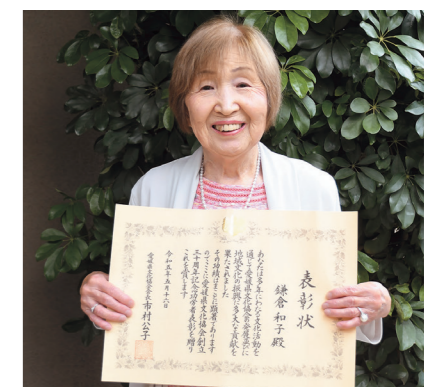 表彰状
鎌倉 和子殿
あなたは多年にわたる文化活動を
通じて愛媛県文化協会の発展並に
地域文化の振興に多大な貢献を
果たされました
その功績はまことに顕著であります
のでここに愛媛県文化協会創立
三十周年記念功労者表彰を贈り
これを賞します
令和五年五月二十六日
愛媛県文化協会会長 市村公子